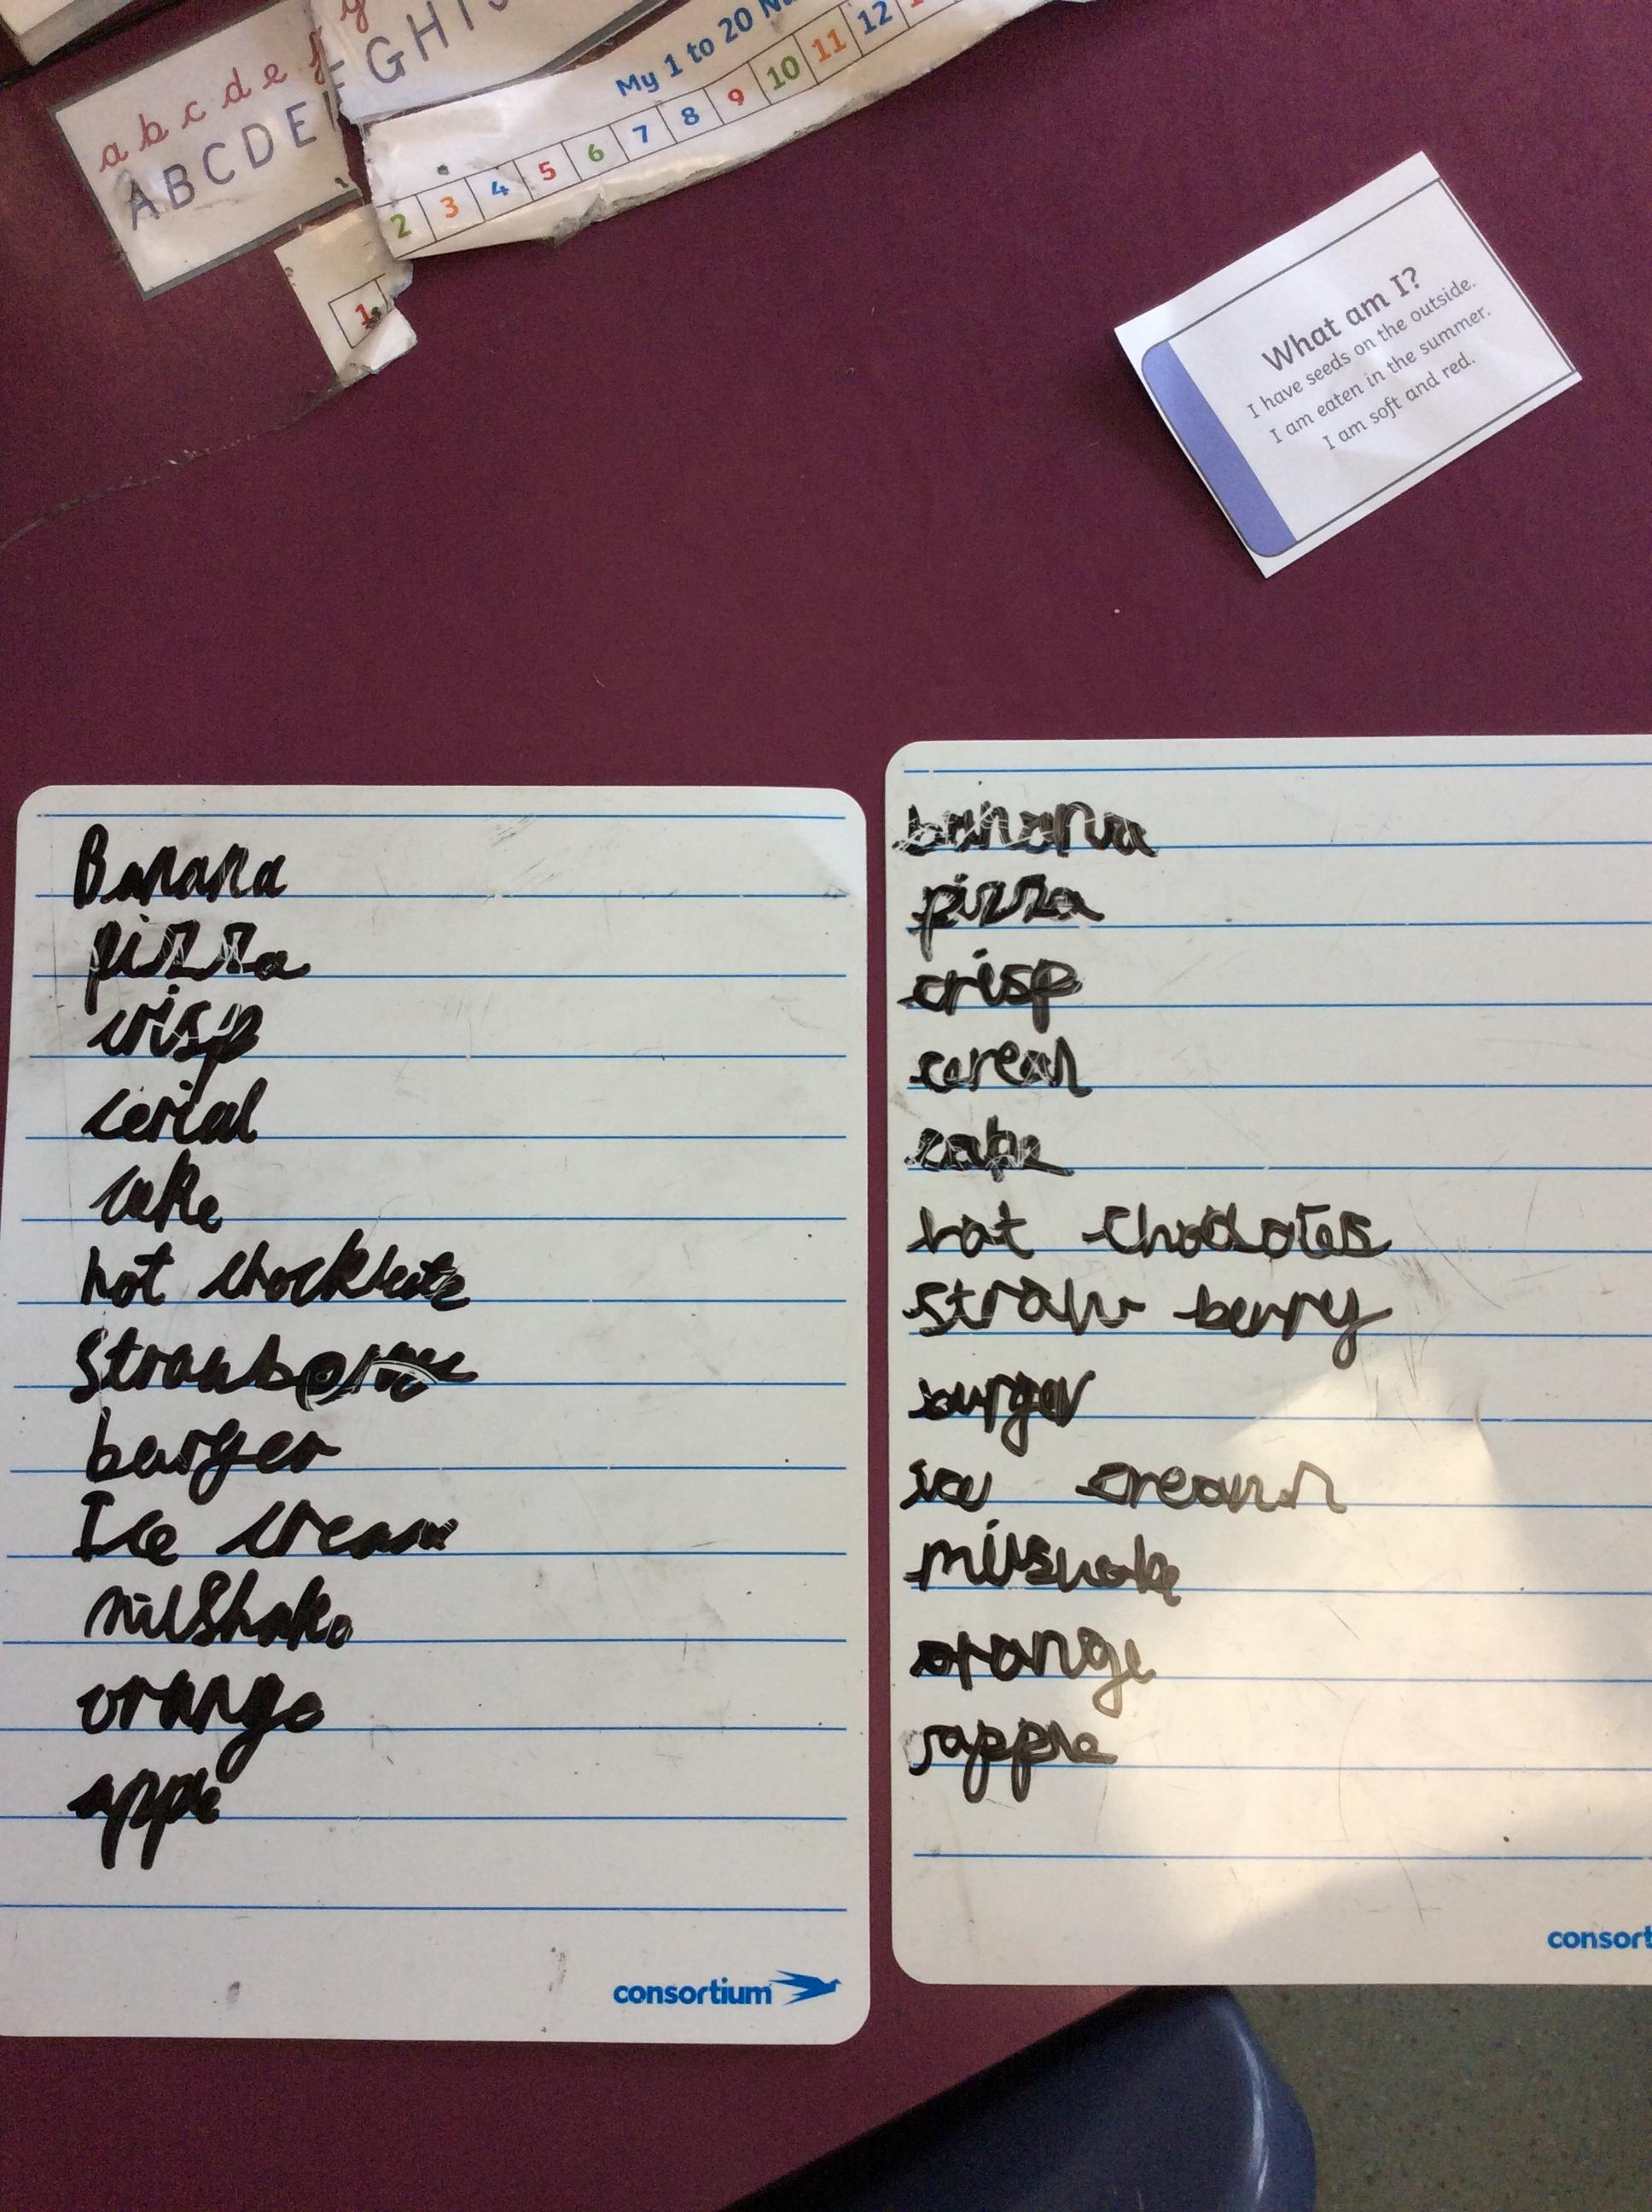 a b c d e f g
A B C D E F G H I
My 1 to 20
1 2 3 4 5 6 7 8 9 10 11 12
What am I?
I have seeds on the outside.
I am eaten in the summer.
I am soft and red.
Banana
pizza
crisp
cerial
cake
hot
burger
Ice cream
milshake
orange
consortium
banana
pizza
crisp
cereal
cake
hot
straw berry
burger
ice cream
milshake
orange
apple
consort